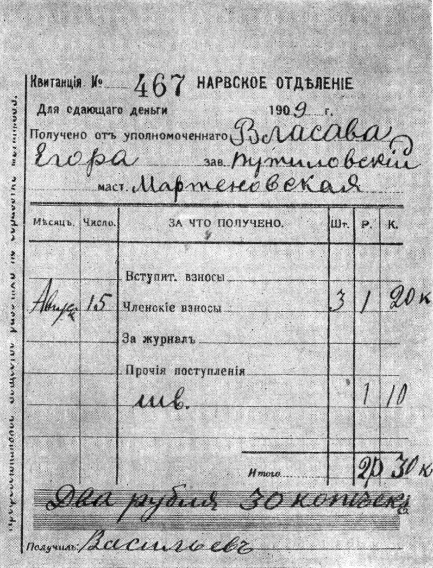 Квитанція № 467 НАРВСКОЕ ОТДѢЛЕНІЕ
Для сдающаго деньги 1909 г.
Получено отъ уполномоченнаго Власава
Егора зав. Путиловскій
маст. Мартеновская
Мѣсяцъ. Число. ЗА ЧТО ПОЛУЧЕНО. Шт. Р. К.
Вступит. взносы
Август 15 Членскіе взносы 3 1 20 к
За журналъ
Прочія поступленія
1 10
Итого 2р 30 к
Два рубля 30 копѣекъ
Получилъ Васильевъ